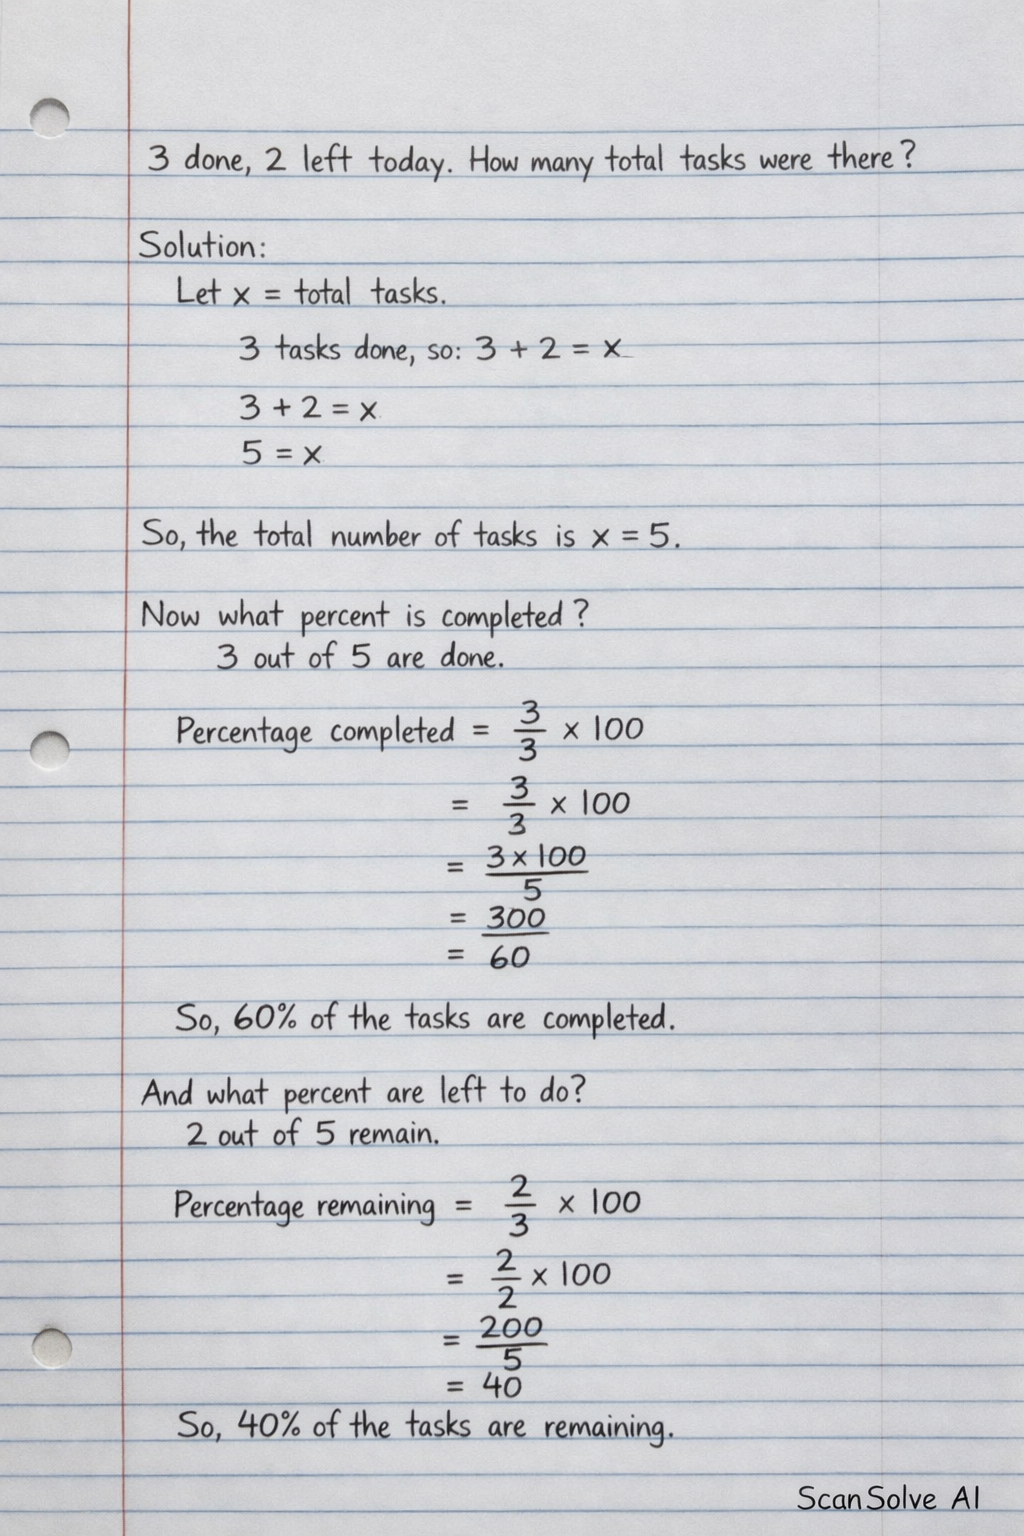 3 done, 2 left today. How many total tasks were there?
Solution:
Let x = total tasks.
3 tasks done, so: 3 + 2 = x
3 + 2 = x
5 = x
So, the total number of tasks is x = 5.
Now what percent is completed?
3 out of 5 are done.
Percentage completed = 3/3 x 100
= 3/3 x 100
= 3 x 100/5
= 300
= 60
So, 60% of the tasks are completed.
And what percent are left to do?
2 out of 5 remain.
Percentage remaining = 2/3 x 100
= 2/2 x 100
= 200/5
= 40
So, 40% of the tasks are remaining.
ScanSolve AI